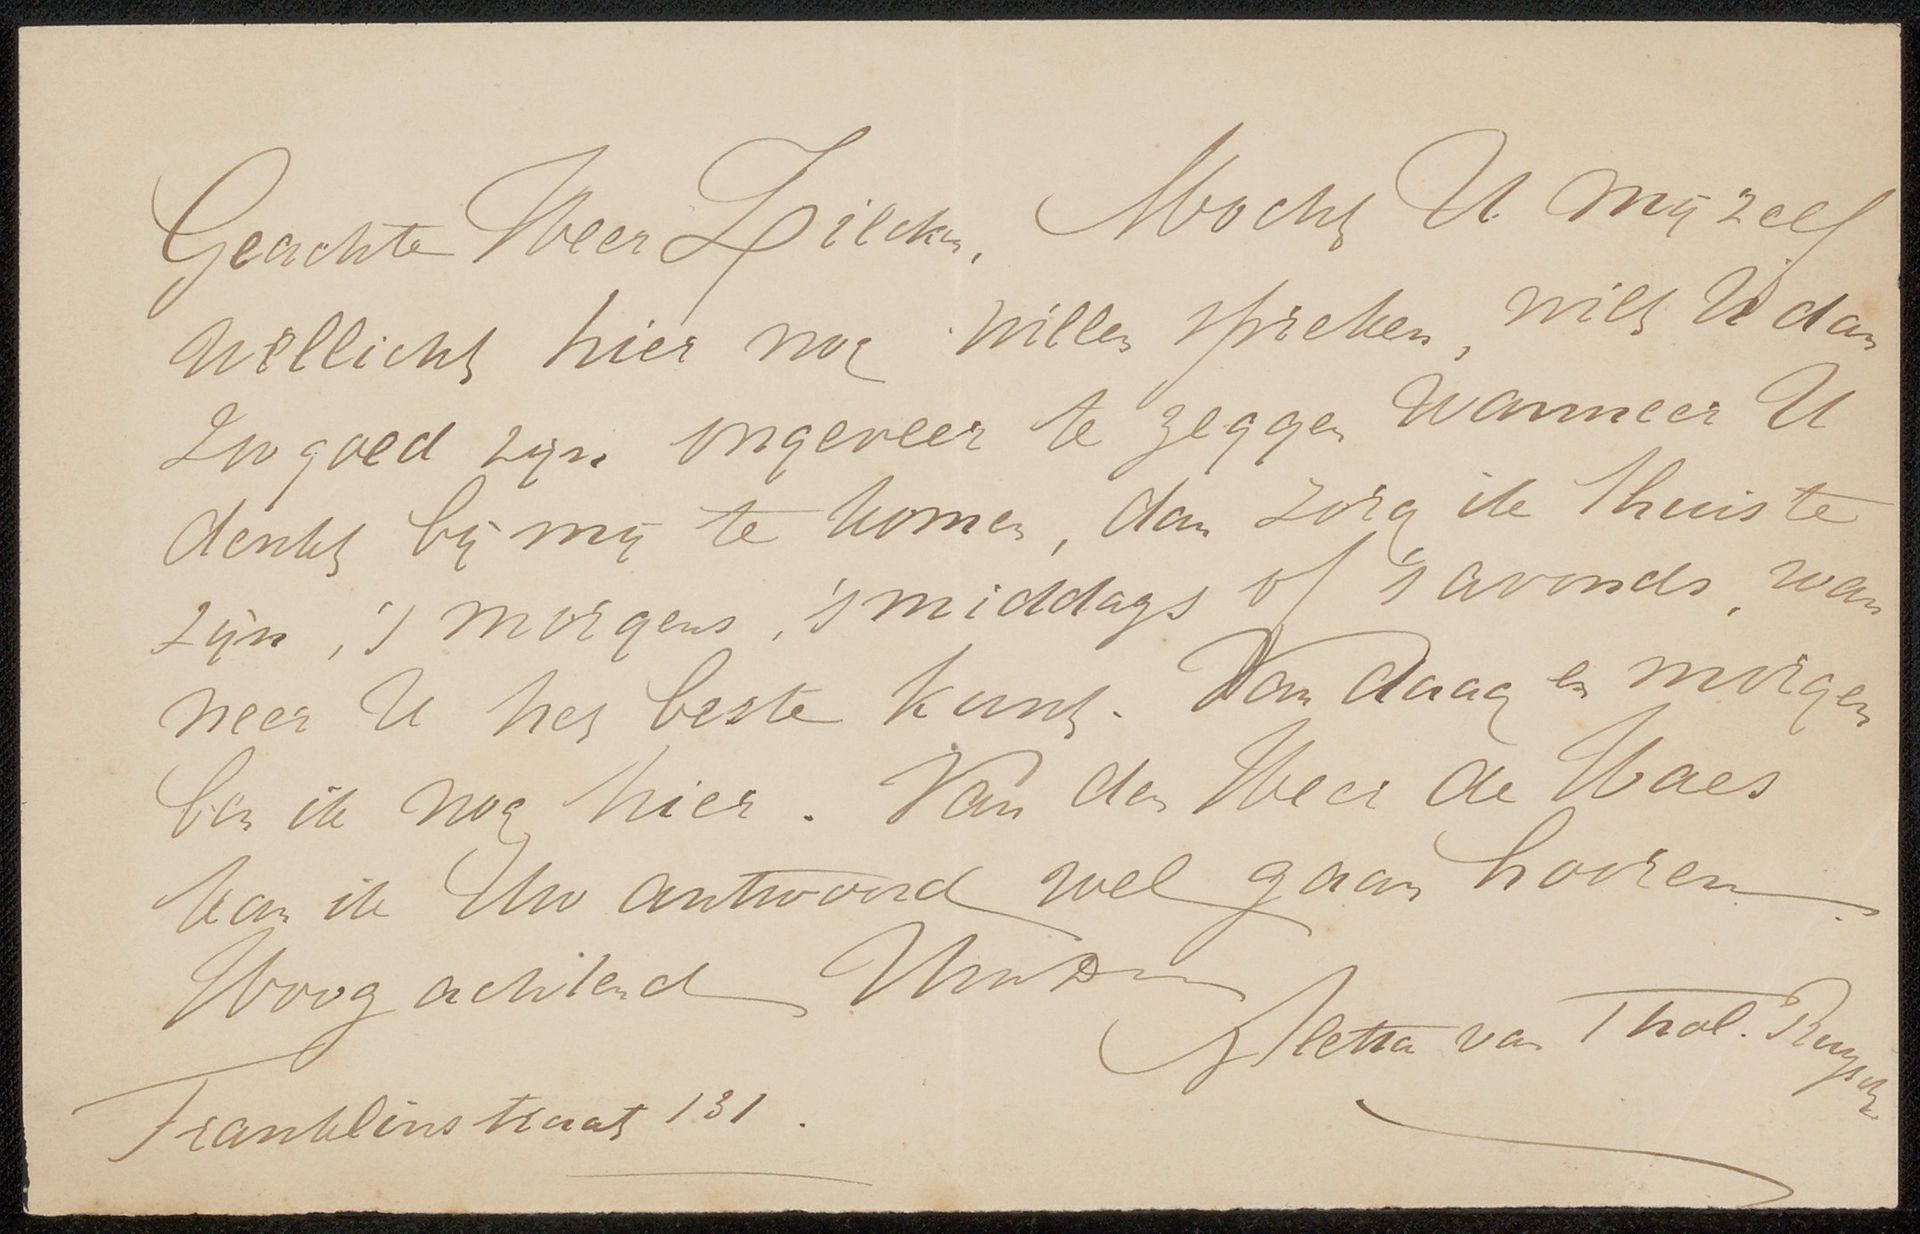 Geachte Heer Zilcken, Mocht U mij zelf
wellicht hier nog willen spreken, wilt U dan
zoo goed zijn ongeveer te zeggen wanneer U
denkt bij mij te komen, dan zorg ik thuis te
zijn, 's morgens, 's middags of 's avonds, wan
neer U het beste kunt. Van daag en morgen
ben ik nog hier. Van den Heer de Haes
kan ik Uw antwoord wel gaan hooren.
Hoog achtend UwDw
Aletta van Thol. Ruysch
Franklinstraat 131.